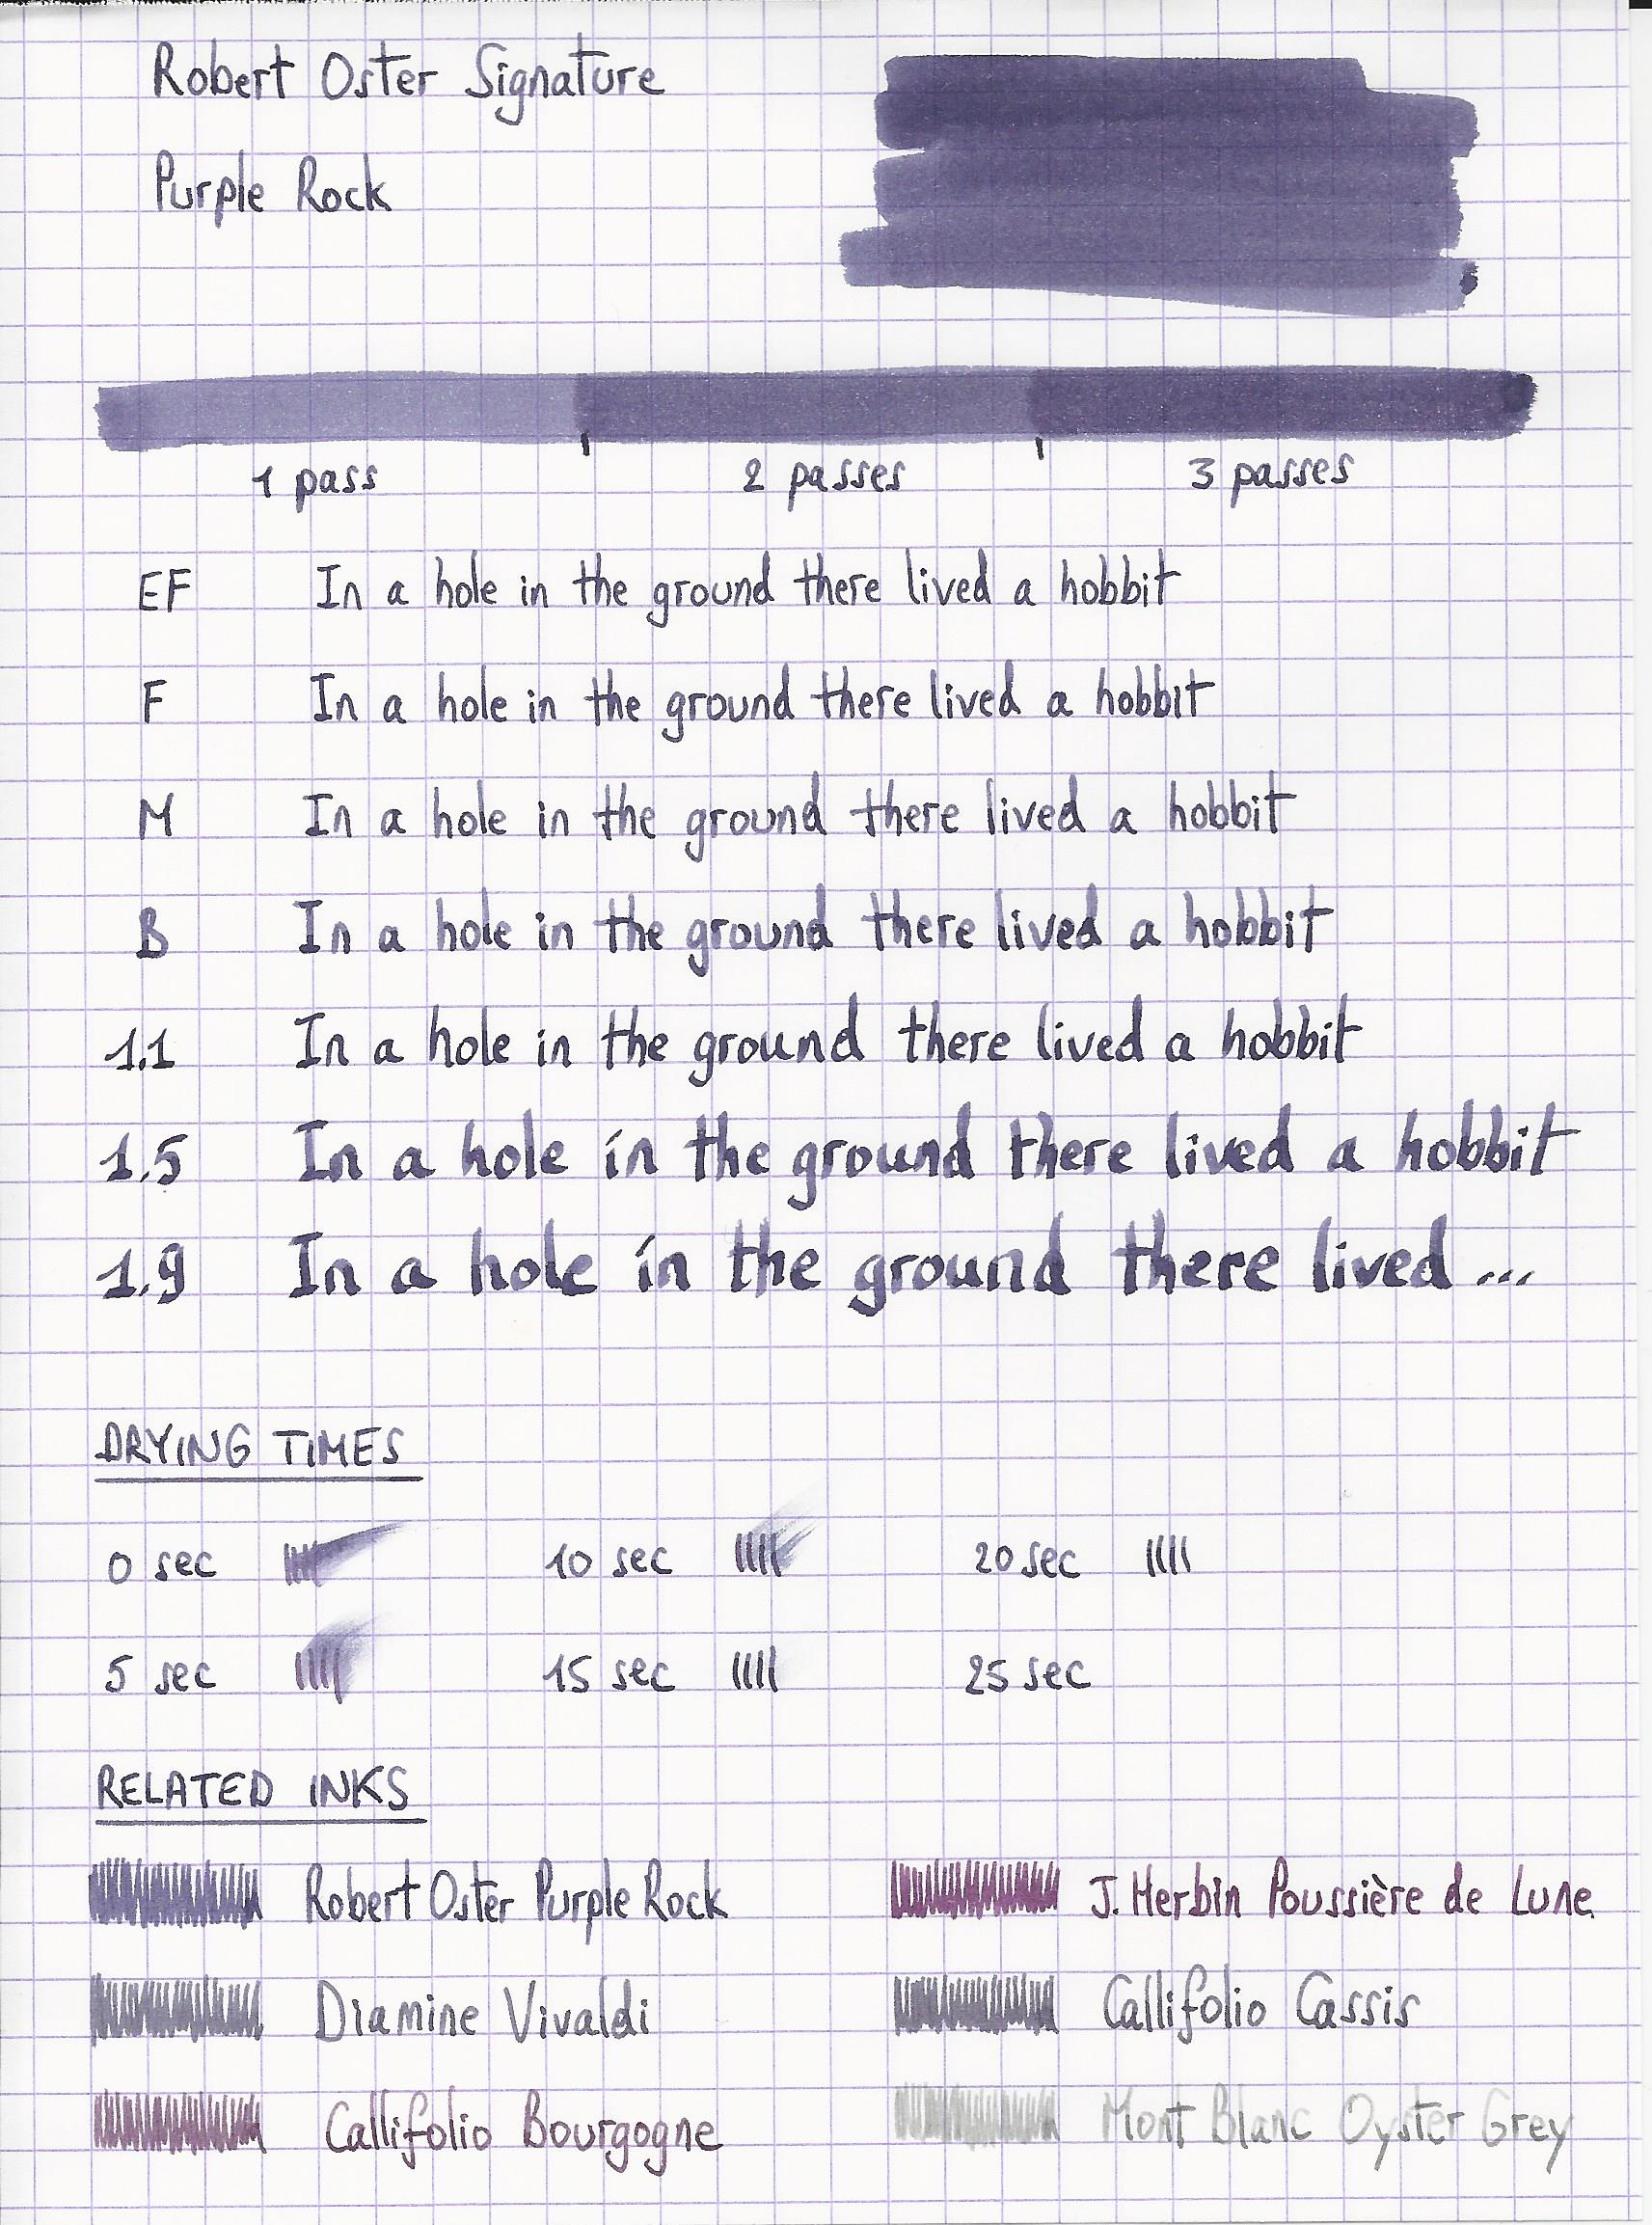 Robert Oster Signature
Purple Rock
1 pass 2 passes 3 passes
EF In a hole in the ground there lived a hobbit
F In a hole in the ground there lived a hobbit
M In a hole in the ground there lived a hobbit
B In a hole in the ground there lived a hobbit
1.1 In a hole in the ground there lived a hobbit
1.5 In a hole in the ground there lived a hobbit
1.9 In a hole in the ground there lived ...
DRYING TIMES
0 sec 10 sec 20 sec
5 sec 15 sec 25 sec
RELATED INKS
Robert Oster Purple Rock J. Herbin Poussière de Lune
Diamine Vivaldi Callifolio Cassis
Callifolio Bourgogne Mont Blanc Oyster Grey